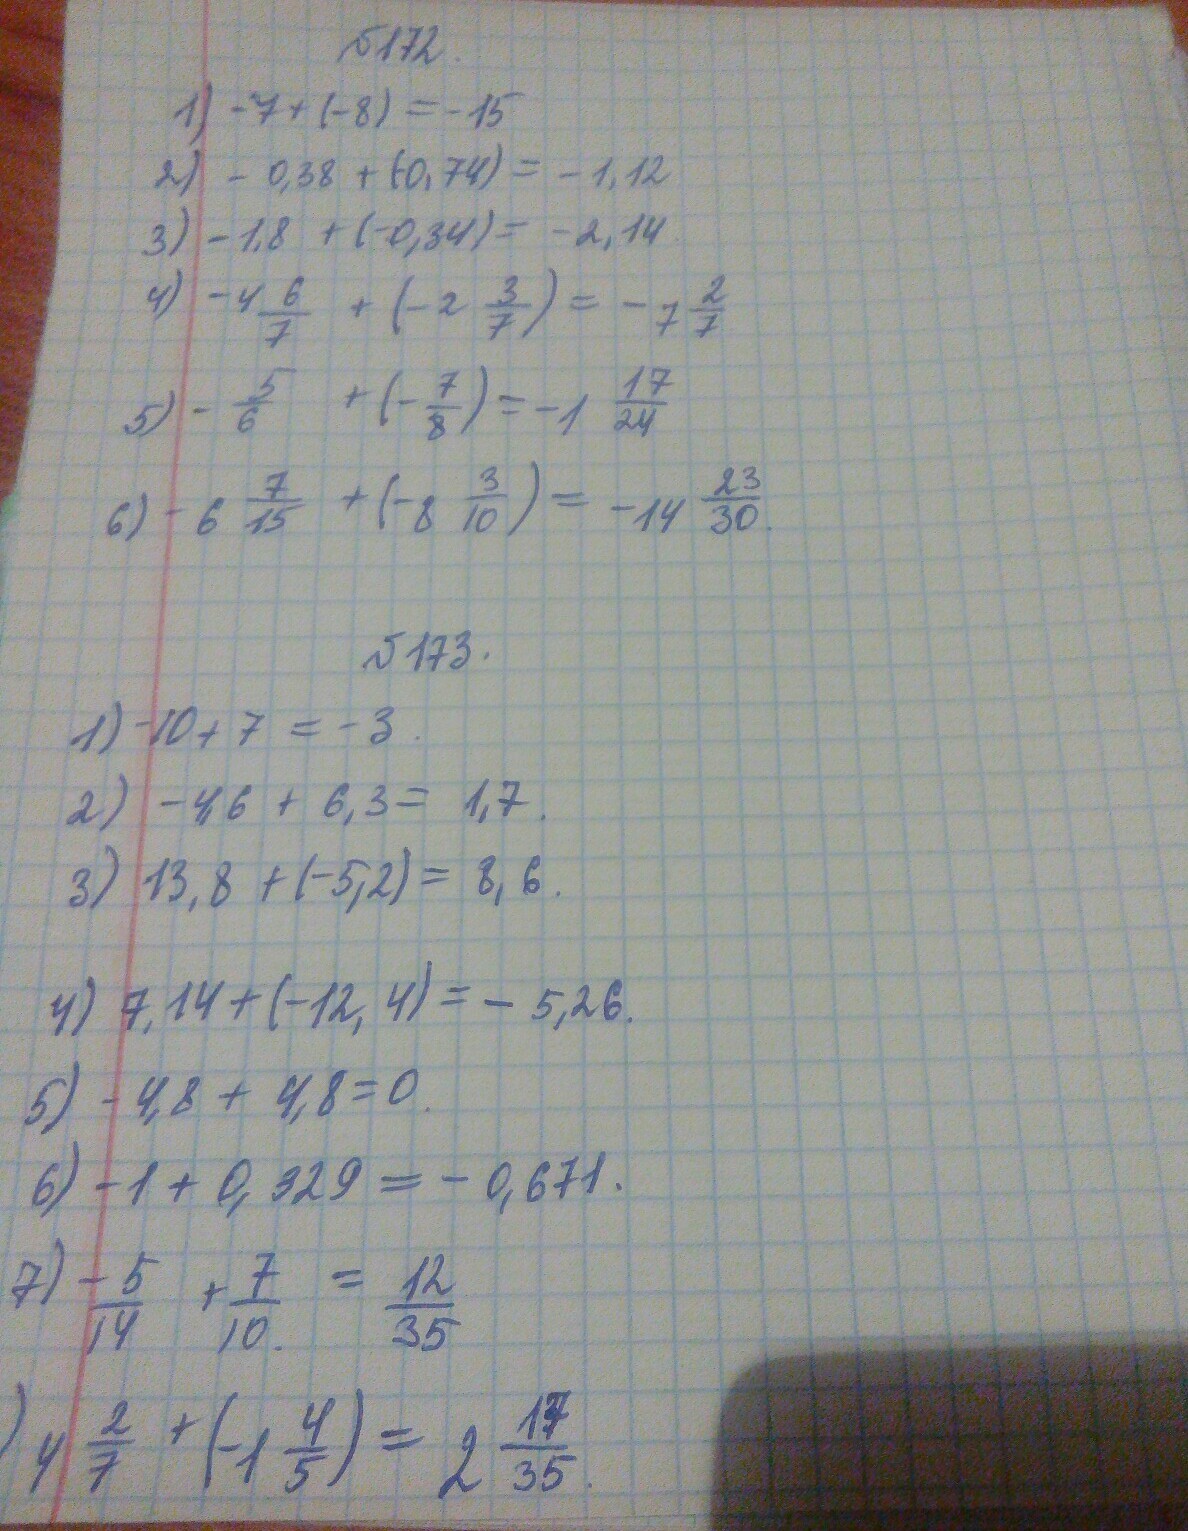 №172.
1) -7+(-8) = -15
2) - 0,38 + (-0,74) = -1,12
3) -1,8 + (-0,34) = -2,14
4) -4 6/7 + (-2 3/7) = -7 2/7
5) - 5/6 + (-7/8) = -1 17/24
6) -6 7/15 + (-8 3/10) = -14 23/30.
№173.
1) -10+7 = -3.
2) -4,6 + 6,3 = 1,7.
3) 13,8 + (-5,2) = 8,6.
4) 7,14+(-12,4) = - 5,26.
5) -4,8 + 4,8=0.
6) -1+0,329 = - 0,671.
7) -5/14 + 7/10. = 12/35
) 4 2/7 + (-1 4/5) = 2 17/35.